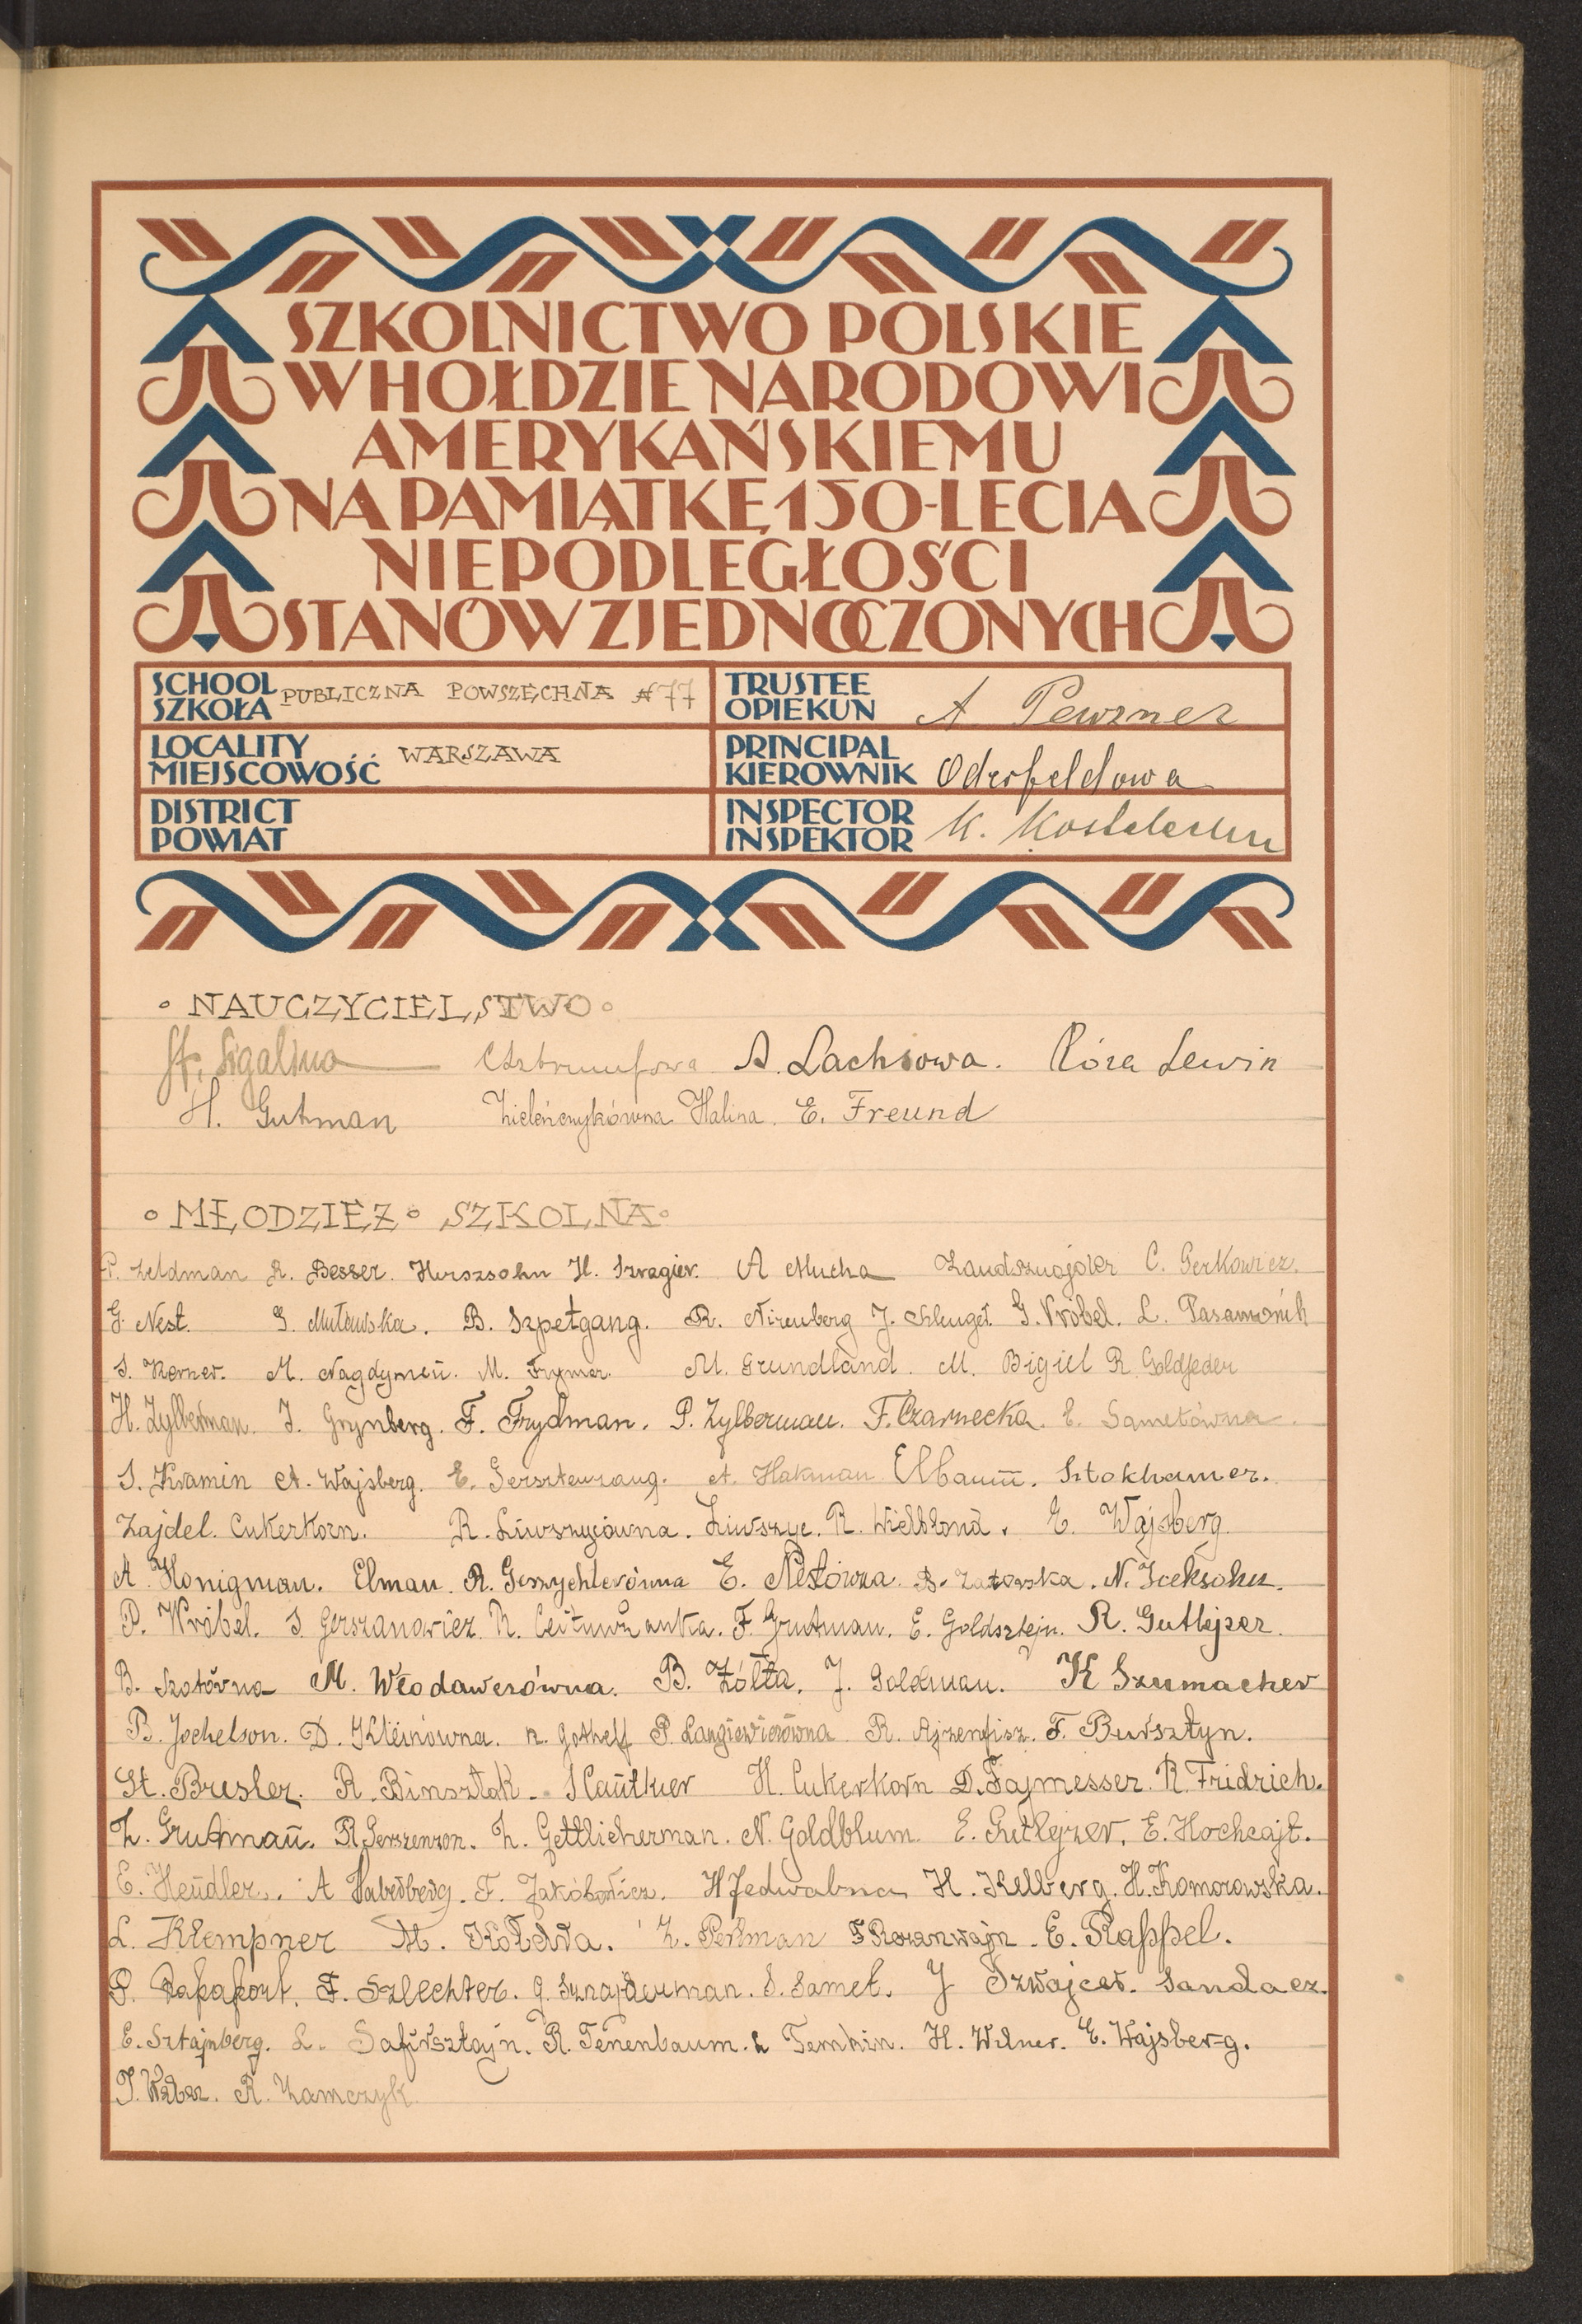 SZKOLNICTWO POLSKIE
W HOŁDZIE NARODOWI
AMERYKAŃSKIEMU
NA PAMIĄTKĘ 150-LECIA
NIEPODLEGŁOŚCI
STANÓW ZJEDNOCZONYCH
SCHOOL
SZKOŁA PUBLICZNA POWSZECHNA № 77
TRUSTEE
OPIEKUN A Pewzner
LOCALITY
MIEJSCOWOŚĆ WARSZAWA
PRINCIPAL
KIEROWNIK Oderfeldowa
DISTRICT
POWIAT
INSPECTOR
INSPEKTOR K.
NAUCZYCIELSTWO
St. Sigalina A. Lachsowa. Róża Lewin
H. Gutman Zieleńczykówna Halina. E. Freund
MŁODZIEŻ SZKOLNA
P. Zeldman R. Besser. Herszsohn H. Szragier. A Mucha C. Gerkowicz.
G. Nest. G. Muławska. B. Szpetgang. R. Nirenberg J. Szluget G. Wróbel. L. Pasamonik
S. Kerner. M. Nagdymen. M. Frymer. M. Grundland. M. Bigiel R. Goldfeder
H. Zylberman. I. Grynberg. F. Frydman. P. Zylberman. F. Czarnecka. E. Sametówna.
S. Kramin A. Wajsberg. E. Gersztenzang. A. Hakman Elbaum. Sztokhamer.
Zajdel. Cukerkorn. R. Liwszycówna. Liwszyc. R. E. Wajsberg.
A. Honigman. Elman. R. Geszychterówna E. Nestówna B. Zatorska. N. Iceksohn.
P. Wróbel. S. Gerszanowicz. R. F. Grutman. E. Goldsztejn. R. Gutlejzer.
B. Szotówna M. Włodawerówna. B. Żółta. J. Goldman. K Szumacher
B. Jochelson. D. Kleinówna. R. Gothelf P. Langiewiczówna R. Ajzenfisz. F. Bursztyn.
St. Bresler. R. Binsztok. H. Cukerkorn D. Fajmesser. R. Fridrich.
Z. Grutman. R. Gerszenzon. Z. Gettlicherman. N. Goldblum. E. Gutlejzer. E. Hochcajt.
E. Hendler. A Haberberg. F. Jakóbowicz. H Jedwabna H. Kelberg. H. Komorowska.
L. Klempner M. Kołdra. Z. Perlman F Rozanwajn. E. Rappel.
P. Rapaport. F. Szlechter. G. Sznajderman. S. Samet. J Szwajcer. Sandacz.
E. Sztajnberg. L. Safirsztajn. R. Tenenbaum. L Temkin. H. Wilner. E. Wajsberg.
R. Zamczyk.